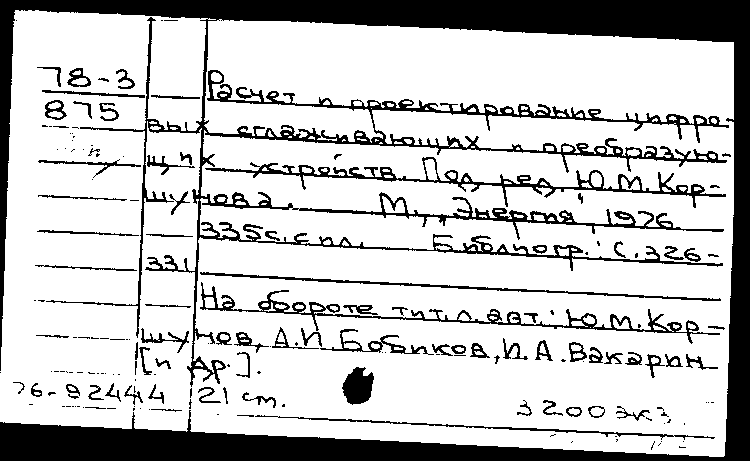 78-3 Расчет и проектирование цифро-
875 вых сглаживающих и преобразую-
щих устройств. Под ред. Ю.М.Кор-
шунова. М., „Энергия", 1976.
335с. с ил. Библиогр.: с.326-
331
На обороте тит.л.авт.: Ю.М.Кор-
шунов, А.И.Бобиков, И.А.Вакарин
[и др.].
76-92444 21 см. 3200экз